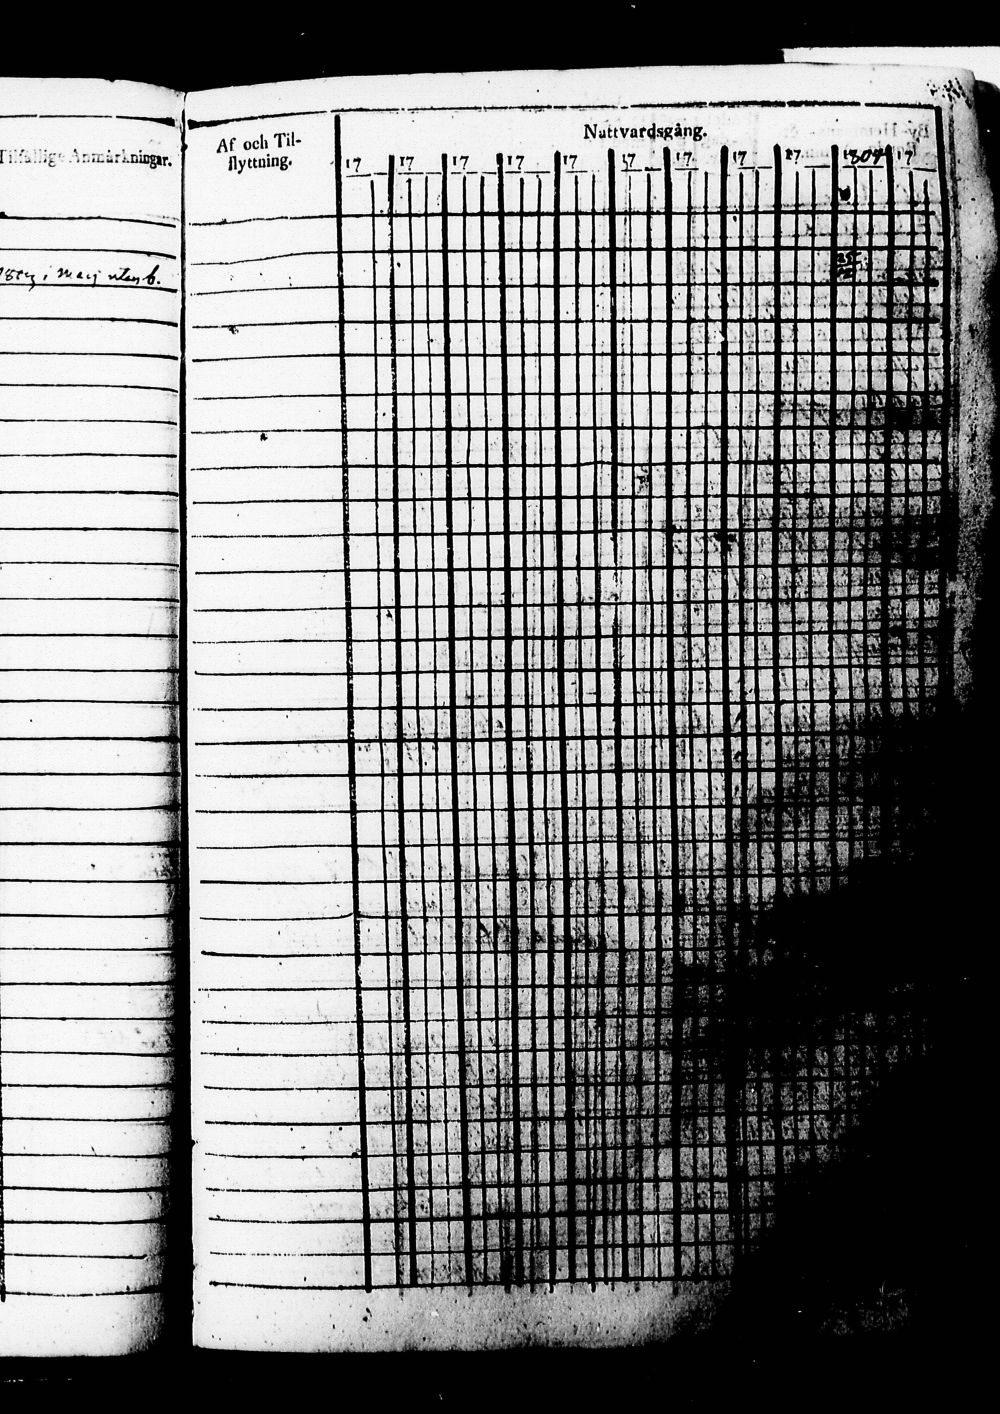 Tilfällige Anmärkningar.
i Maij
Af och Til-
flyttning.
Nattvardsgång.
17 17 17 17 17 17 17 17 17 1804 17
25